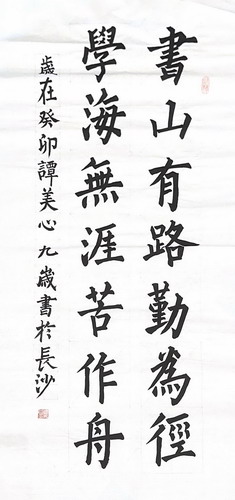 書山有路勤為徑
學海無涯苦作舟
歲在癸卯譚美心九歲書於長沙